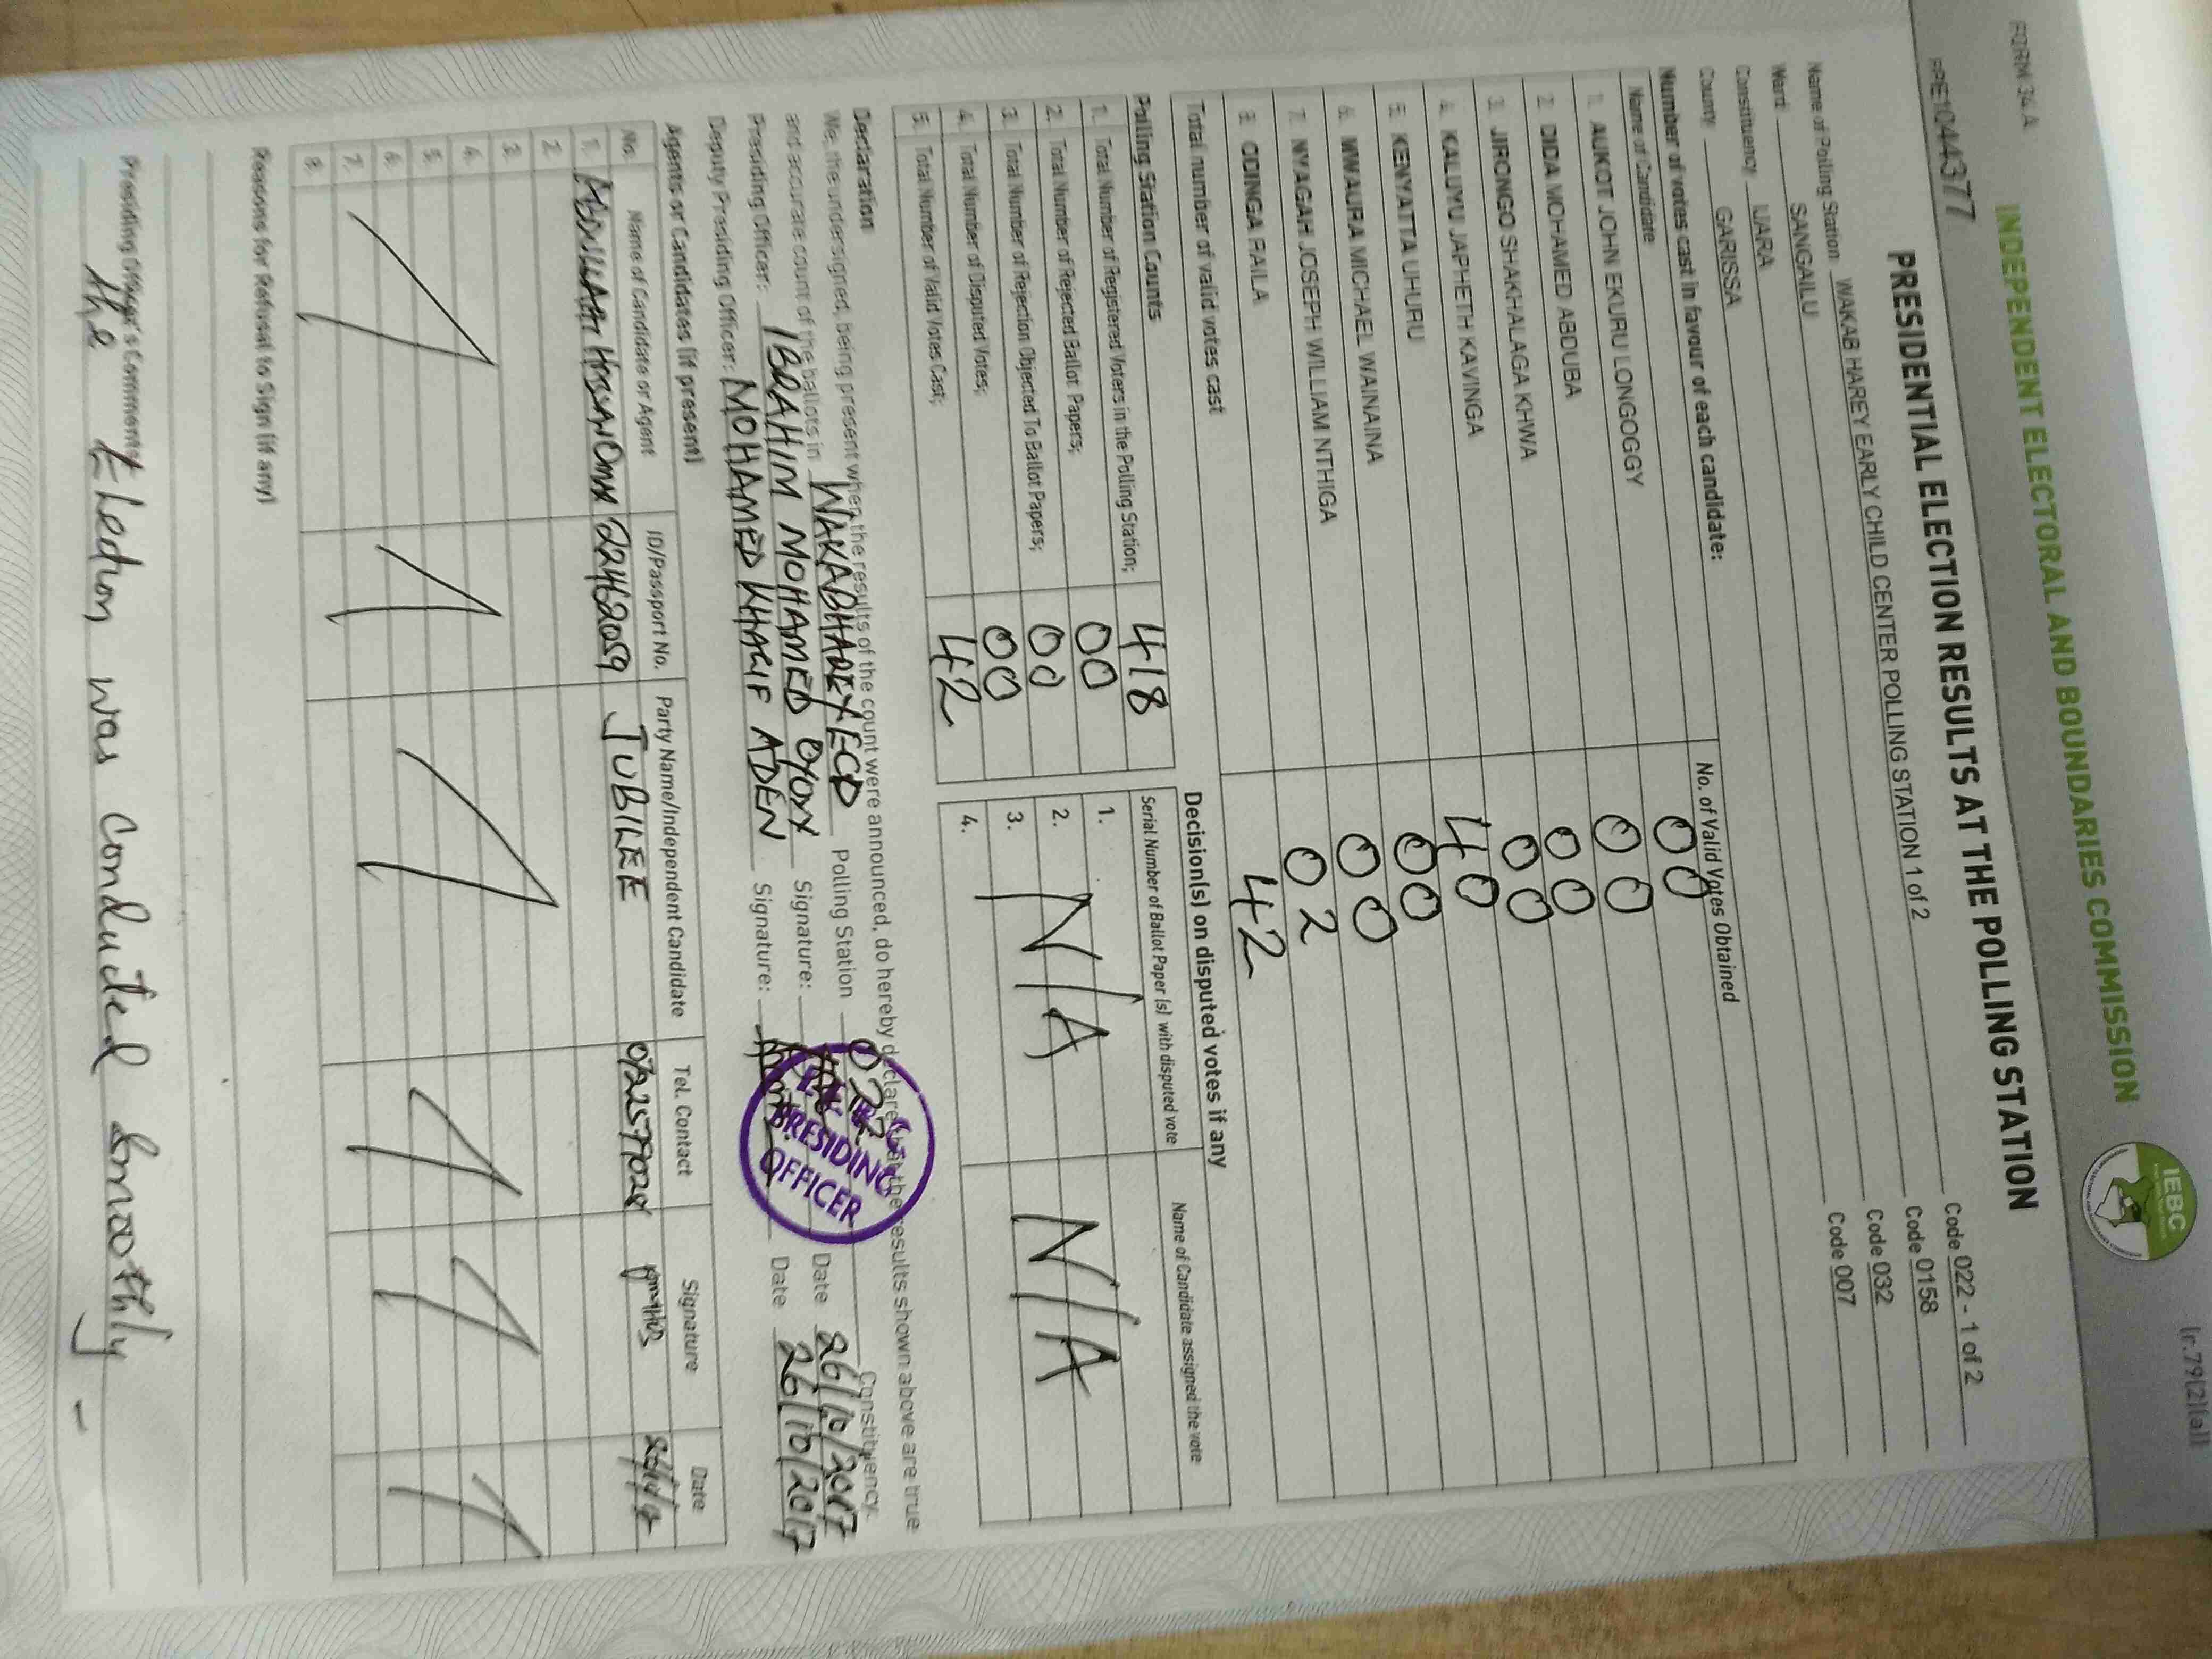 FORM 34A
(r.79(2)(a))
INDEPENDENT ELECTORAL AND BOUNDARIES COMMISSION
IEBC
PRE1044377
PRESIDENTIAL ELECTION RESULTS AT THE POLLING STATION
Name of Polling Station WAKAB HAREY EARLY CHILD CENTER POLLING STATION 1 of 2 Code 022 - 1 of 2
Ward SANGAILU Code 0158
Constituency IJARA Code 032
County GARISSA Code 007
Number of votes cast in favour of each candidate:
Name of Candidate No. of Valid Votes Obtained
1. AUKOT JOHN EKURU LONGOGGY 00
2. DIDA MOHAMED ABDUBA 00
3. JIRONGO SHAKHALAGA KHWA 00
4. KALUYU JAPHETH KAVINGA 00
5. KENYATTA UHURU 40
6. MWAURA MICHAEL WAINAINA 00
7. NYAGAH JOSEPH WILLIAM NTHIGA 00
8. ODINGA RAILA 02
Total number of valid votes cast 42
Polling Station Counts
1. Total Number of Registered Voters in the Polling Station; 418
2. Total Number of Rejected Ballot Papers; 00
3. Total Number of Rejection Objected To Ballot Papers; 00
4. Total Number of Disputed Votes; 00
5. Total Number of Valid Votes Cast; 42
Decision(s) on disputed votes if any
Serial Number of Ballot Paper (s) with disputed vote Name of Candidate assigned the vote
1.
2. N/A N/A
3.
4.
Declaration
We, the undersigned, being present when the results of the count were announced, do hereby declare that the results shown above are true
and accurate count of the ballots in WAKABHAREY ECD Polling Station 022 Constituency.
Presiding Officer: IBRAHIM MOHAMED Signature: Date 26/10/2017
Deputy Presiding Officer: MOHAMED KHALIF ADEN Signature: Date 26/10/2017
PRESIDING
OFFICER
Agents or Candidates (if present)
No. Name of Candidate or Agent ID/Passport No. Party Name/Independent Candidate Tel. Contact Signature Date
1. 22462059 JUBILEE 0722577028
2.
3.
4.
5.
6.
7.
8.
Reasons for Refusal to Sign (if any)
Presiding Officer's Comments
the Election was Conducted Smoothly